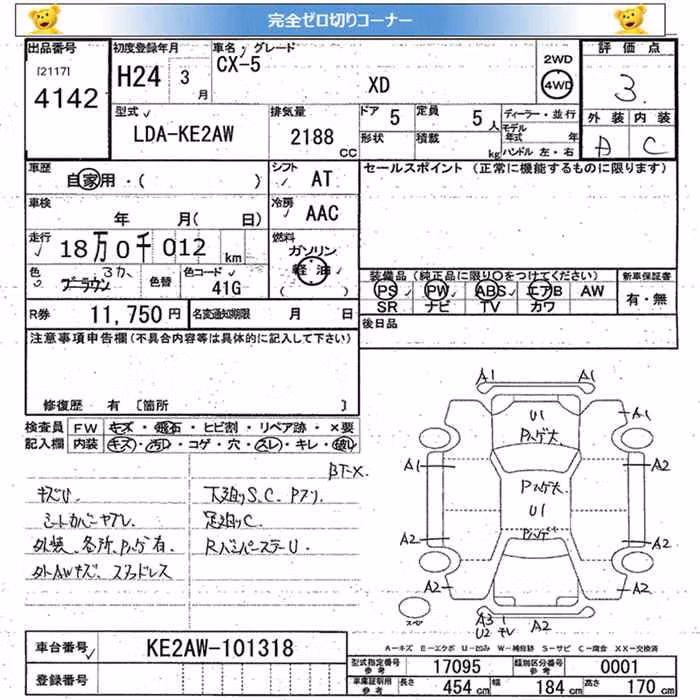 完全ゼロ切りコーナー
出品番号 初度登録年月 車名 グレード 評価点
[2117] 4142 H24 3月 CX-5 XD 2WD 4WD 3
外装 内装
型式 LDA-KE2AW 排気量 2188 CC ドア 5 定員 5人 ディーラー・並行
形状 積載 kg モデル年式 年 ハンドル 左・右 C
車歴 自家用・( ) シフト AT セールスポイント (正常に機能するものに限ります)
車検 年 月( 日) 冷房 AAC
走行 18万0千012 km 燃料 ガソリン 軽油 ( )
色 ブラウン 色替 色コード 41G
装備品 (純正品に限り○をつけてください) 新車保証書
PS PW ABS エアB AW 有・無
SR ナビ TV カワ
R券 11,750円 名変通知期限 月 日 後日品
注意事項申告欄(不具合内容等は具体的に記入して下さい)
修復歴 有 〔箇所 〕
検査員 FW キズ・飛石・ヒビ割・リペア跡・×要
記入欄 内装 キズ・汚レ・コゲ・穴・スレ・キレ・破レ
キズU. 下廻りS.C.
シートカバーヤブレ. 足廻りC.
外装.各所.Pハゲ有. RバンパーステーU.
外AWキズ. スタッドレス
A1 A1
U1 Pハゲ大 A1
A1 A2
Pハゲ大 U1
Pハゲ
A2 A2
A2 A2
A3 U2 A2
A-キズ E-エクボ U-凹み W-補修跡 S-サビ C-腐食 XX-交換済
車台番号 KE2AW-101318
登録番号
型式指定番号 参考 17095 類別区分番号 参考 0001
車庫証明用 参考 長さ 454 cm 幅 184 cm 高さ 170 cm